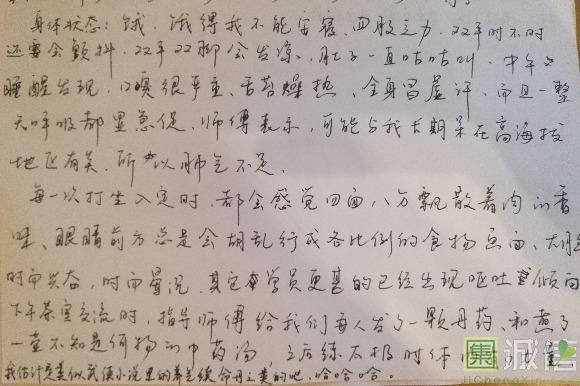 身体状态：饿，饿得我不能安寝、四肢乏力、双手时不时
还要会颤抖，双手双脚会发凉，肚子一直咕咕叫，中午
睡醒发现，口唇很严重、舌苔燥热、全身冒虚汗，而且一整
天呼吸都显急促，师傅表示，可能与我长期呆在高海拔
地区有关，所以肺气不足。
每一次打坐入定时，都会感觉四面八方飘散着肉的香
味、眼睛前方总是会胡乱形成各比例的食物画面、大脑
时而兴奋，时而昏沉，其它学员更甚的已经出现呕吐倾向
下午茶室交流时，指导师傅给我们每人发了一颗丹药、和煮了
一壶不知是何物的中药汤，之后练太极时体
我估计是类似武侠小说里的养气续命丹之类的吧，哈哈哈。
集诚信